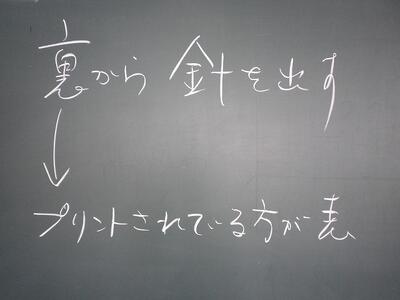 裏から針を出す
プリントされている方が表